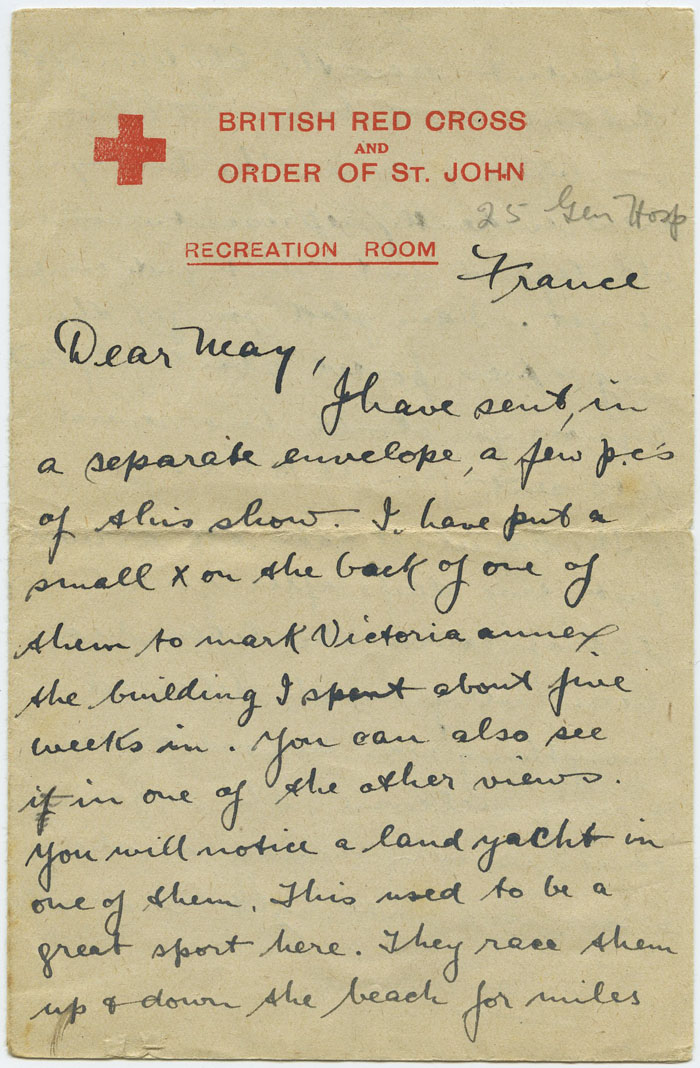 BRITISH RED CROSS
AND
ORDER OF ST. JOHN
25 Gen Hosp
RECREATION ROOM
France
Dear May,
I have sent, in
a separate envelope, a few p.c's
of this show. I have put a
small x on the back of one of
them to mark Victoria annex
the building I spent about five
weeks in. You can also see
it in one of the other views.
You will notice a land yacht in
one of them. This used to be a
great sport here. They race them
up & down the beach for miles